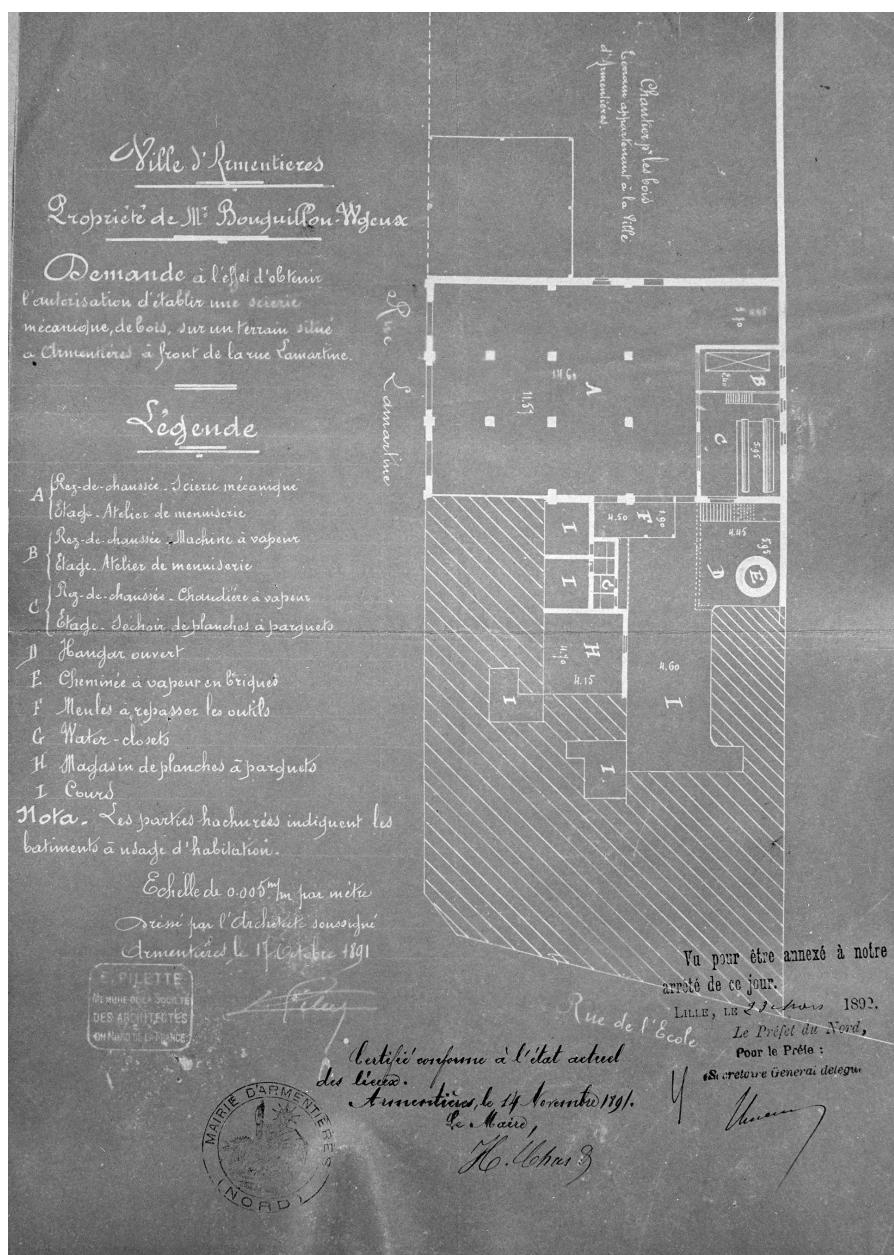 Ville d'Armentières
Propriété de Mr. Bouquillon-Wgeux
Demande à l'effet d'obtenir
l'autorisation d'établir une scierie
mécanique, de bois, sur un terrain situé
a Armentières à front de la rue Lamartine.
Légende
A Rez-de-chaussée - Scierie mécanique
Etage - Atelier de menuiserie
B Rez-de-chaussée - Machine à vapeur
Etage - Atelier de menuiserie
C Rez-de-chaussée - Chaudière à vapeur
Etage - Séchoir de planches à parquets
D Hangar ouvert
E Cheminée à vapeur en briques
F Meules à repasser les outils
G Water-closets
H Magasin de planches à parquets
I Cours
Nota - Les parties hachurées indiquent les
batiments à usage d'habitation.
Echelle de 0.005 m/m par mètre
Dressé par l'Architecte soussigné
Armentières, le 17 Octobre 1891
E. PILETTE
MEMBRE DE LA SOCIÉTÉ
DES ARCHITECTES
DU NORD DE LA FRANCE
Chantier pr les bois
terrain appartenant à la Ville
d'Armentières.
Rue Lamartine
A
14.60
11.57
B
C
5.95
F
4.50
1.90
4.45
5.95
D
E
I
I
G
H
4.70
4.15
4.60
I
I
I
Rue de l'Ecole
Certifié conforme à l'état actuel
des lieux.
Armentières, le 14 Novembre 1891.
Le Maire,
MAIRIE D'ARMENTIÈRES
(NORD)
Vu pour être annexé à notre
arrêté de ce jour.
LILLE, LE 23 mars 1892.
Le Préfet du Nord,
Pour le Préfet :
Secrétaire Général délégué